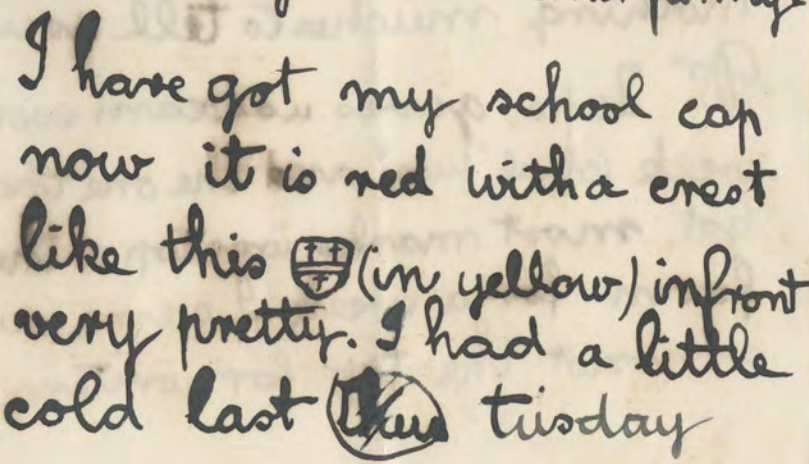 I have got my school cap
now it is red with a crest
like this (in yellow) infront
very pretty. I had a little
cold last tuisday